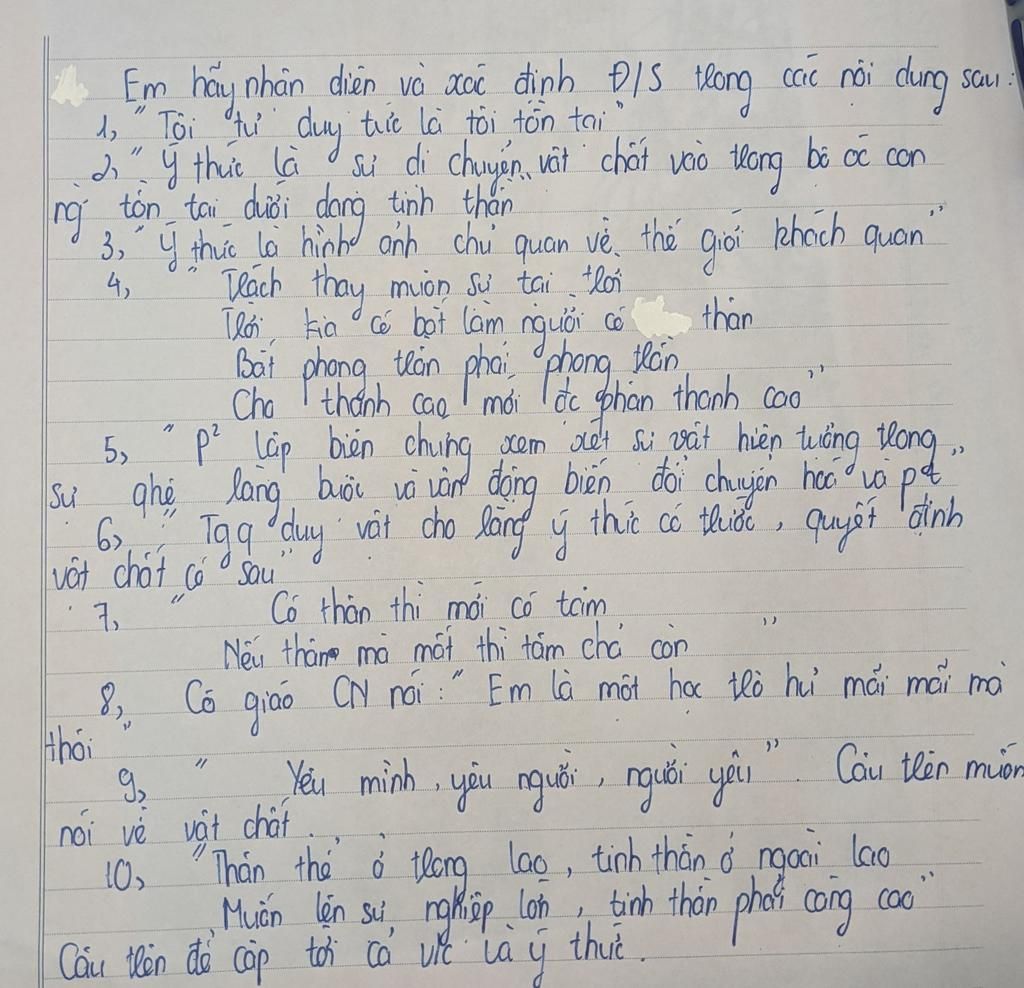 Em hãy nhân diên và xác định Đ/S trong các nôi dung sau:
1, "Tôi tư duy tức là tôi tồn tai"
2, "Ý thức là sư di chuyển vât chất vào trong bô óc con
ng' tồn tai dưới dang tinh thần
3, "Ý thức là hình ảnh chủ quan về thế giới khách quan"
4, "Trách thay muôn sư tai trời
Trời kia có bắt làm người có thân
Bắt phong trần phải phong trần
Cho thanh cao mới đc phần thanh cao"
5, "P² lâp biên chứng xem xét sư vât hiên tương trong
sư ghê ràng buôc và vân động biến đổi chuyển hoá và pt"
6, "Tgq duy vât cho rằng ý thức có trước, quyết định
vât chất có sau"
7, "Có thân thì mới có tâm
Nếu thân mà mất thì tâm chả còn"
8, Cô giáo CN nói: "Em là môt học trò hư mãi mãi mà
thôi"
9, "Yêu mình, yêu người, người yêu". Câu trên muốn
nói về vât chất.
10, "Thân thể ở trong lao, tinh thần ở ngoài lao
Muốn lên sư nghiêp lớn, tinh thần phải càng cao"
Câu trên đề câp tới cả v/c và ý thức.